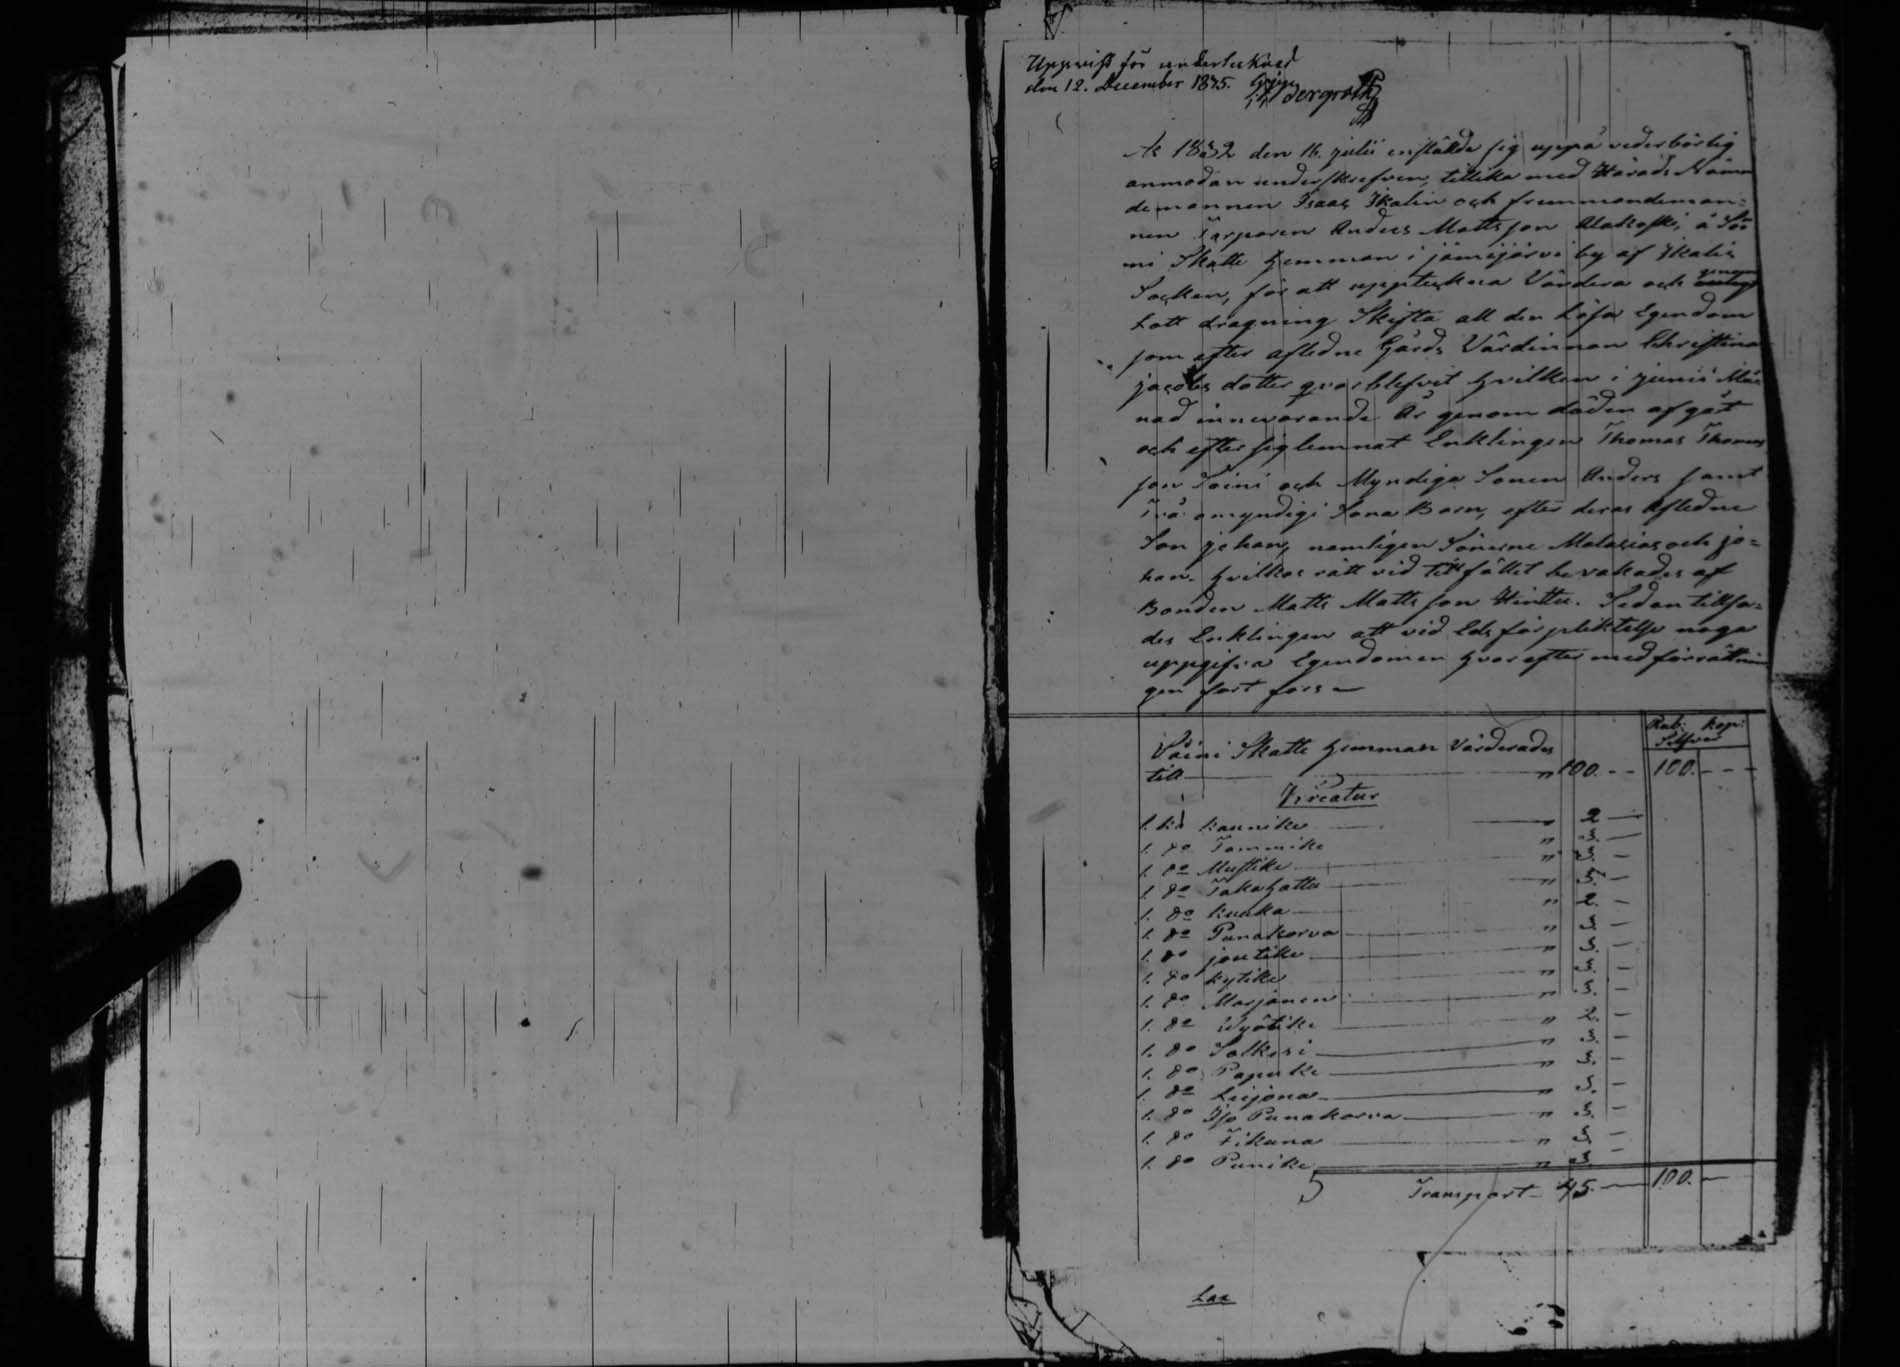 Uppvist för undertecknad
den 12. December 1875.
År 1832 den 16. julii instälde sig uppå vederbörlig
anmodan underskrefven, tillika med Härads Nämn
demannen Isaac Ikalin och fremmandeman=
nen Torparen Anders Mattsson Alakoski, å Soi
ni Skatte hemman i jämijärvi by af Ikalis
Socken, för att uppteckna Värdera och genom
Lott dragning Skifta all den Lösa Egendom
som efter afledne Gårds Värdinnan Christina
jacobs dotter qvarblefvit hvilken i junii Må
nad innevarande År genom döden afgåt
och efter sig lemnat Enklingen Thomas Thomas
son Soini och Myndiga Sonen Anders samt
Två omyndigi Sona Barn, efter deras Afledne
Son johan, namligen Sönerne Matasias och jo=
han. hvilkas rätt vid tillfället bevakades af
Bonden Matts Mattsson Hinttu. Sedan tillsa=
des Enklingen att vid Eds förpliktelse noga
uppgifva Egendomen hvarefter med förrättnin
gen fort fors
Rub: Kop:
Silfver
Soini Skatte hemman Värderades
till " 100. 100.
Kreatur
1. ko kaunike " 2
1. do Tammike " 3.
1. do Mustike " 3.
1. do Takahattu " 3.
1. do kuuka " 2.
1. do Punakorva " 3
1. do joutike " 3.
1. do kytike " 3.
1. do Marjanen " 3.
1. do Wyötike " 2.
1. do Solkisi " 3.
1. do Papurke " 3.
1. do Leijona " 3.
1. do Iso Punakorva " 3.
1. do Tikana " 3.
1. do Punike " 3.
Transport 45. 100.
Lax